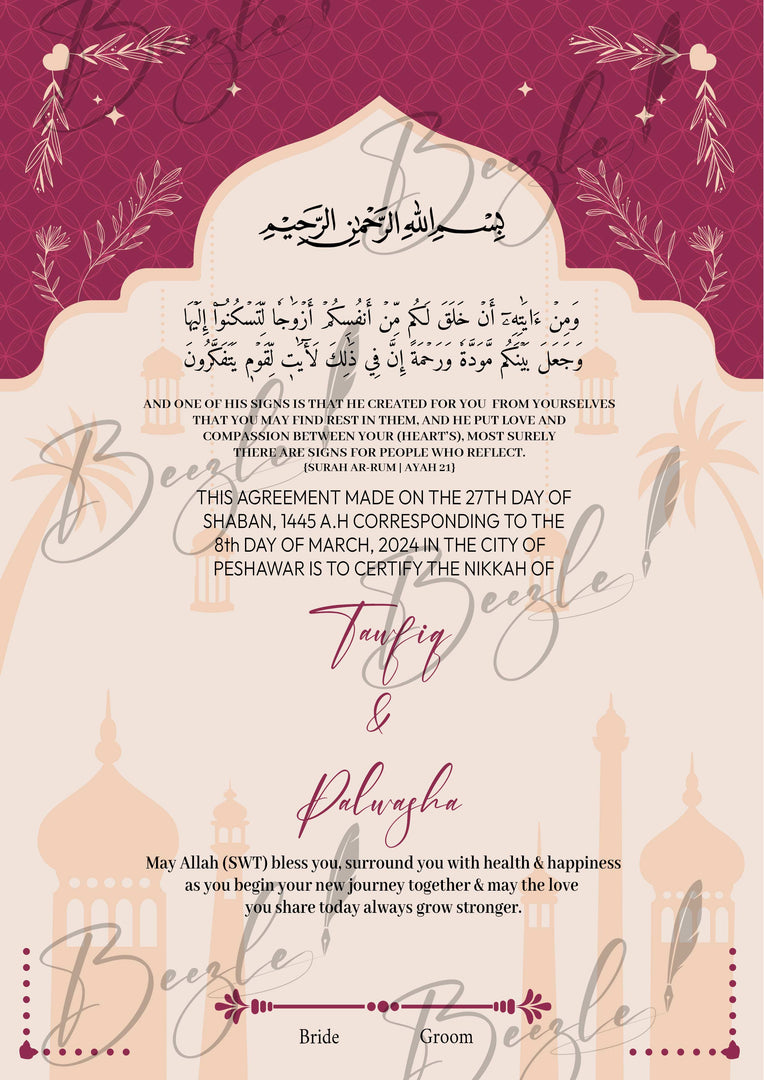 بِسْمِ اللهِ الرَّحْمٰنِ الرَّحِيْمِ
وَمِنْ ءَايَٰتِهِۦٓ أَنْ خَلَقَ لَكُم مِّنْ أَنفُسِكُمْ أَزْوَٰجًا لِّتَسْكُنُوٓا۟ إِلَيْهَا
وَجَعَلَ بَيْنَكُم مَّوَدَّةً وَرَحْمَةً إِنَّ فِي ذَٰلِكَ لَأَيَٰتٍ لِّقَوْمٍ يَتَفَكَّرُونَ
AND ONE OF HIS SIGNS IS THAT HE CREATED FOR YOU FROM YOURSELVES
THAT YOU MAY FIND REST IN THEM, AND HE PUT LOVE AND
COMPASSION BETWEEN YOUR (HEART'S), MOST SURELY
THERE ARE SIGNS FOR PEOPLE WHO REFLECT.
{SURAH AR-RUM | AYAH 21}
THIS AGREEMENT MADE ON THE 27TH DAY OF
SHABAN, 1445 A.H CORRESPONDING TO THE
8th DAY OF MARCH, 2024 IN THE CITY OF
PESHAWAR IS TO CERTIFY THE NIKKAH OF
Tawfiq
&
Palwasha
May Allah (SWT) bless you, surround you with health & happiness
as you begin your new journey together & may the love
you share today always grow stronger.
Bride Groom
Beezle!
Beezle!
Beezle!
Beezle!
Beezle!
Beezle!